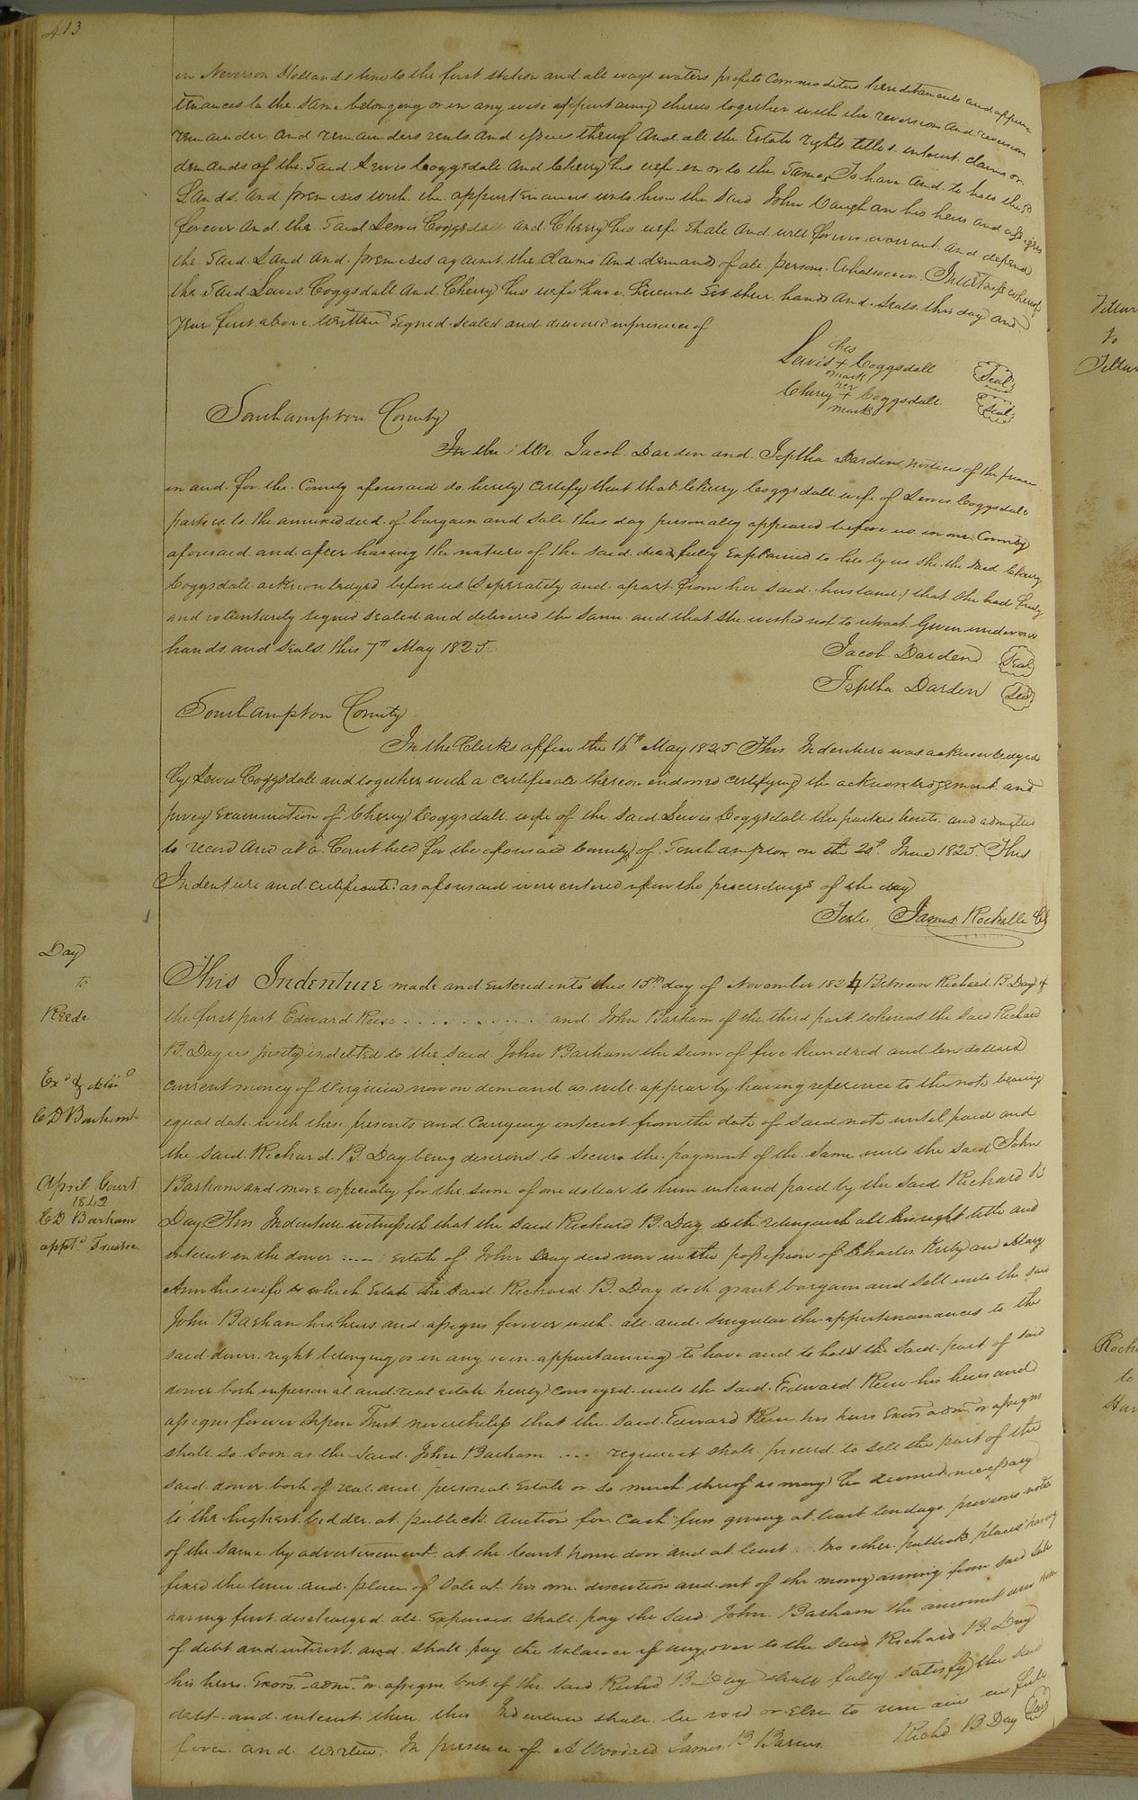 413
on Neverson Hollands line to the first station and all ways waters profits Commodities hereditaments and appur
tenances to the same belonging or in any wise appertaining thereto together with the reversion and reversion
remainder and remainders rents and issues thereof and all the Estate rights titles interest claims or
demands of the said Lewis Coggsdale and Cherry his wife in or to the same, To have and to hold the sd
Lands and premises with the appurtenances unto him the said John Vaughan his heirs and assigns
forever and the said Lewis Coggsdall and Cherry his wife shall and will forever warrant and defend
the said Land and premises against the claims and demand of all persons Whatsoever In witness whereof
the said Lewis Coggsdall and Cherry his wife have hereunto set their hands and seals this day and
year first above written signed sealed and delivered in presence of
his
Lewis + Coggsdall (Seal)
mark
her
Cherry + Coggsdall (Seal)
mark
Southampton County
In the We Jacob Darden and Jeptha Darden Justices of the peace
in and for the County aforesaid do hereby certify that that Cherry Coggsdall wife of Lewis Coggsdale
parties to the annexed deed of bargain and sale this day personally appeared before us in our County
aforesaid and after having the nature of the said deed fully explained to her by us she the said Cherry
Coggsdall acknowledged before us (seperately and apart from her said husband) that she had freely
and voluntarily signed sealed and delivered the same and that she wished not to retract Given under our
hands and seals this 7th May 1825
Jacob Darden (Seal)
Jeptha Darden (Seal)
Southampton County
In the Clerks office the 16th May 1825 This Indenture was acknowledged
by Lewis Coggsdale and together with a certificate thereon endorsed certifying the acknowledgement and
privy examination of Cherry Coggsdall wife of the said Lewis Coggsdall the parties hereto and admitted
to record and at a Court held for the aforesaid County of Southampton on the 20th June 1825 This
Indenture and certificate as aforesaid were entered upon the proceedings of the day
Teste James Rochelle CC
Day
to
Reese
Exd & delid
C D Barham
April Court
1842
C D Barham
apptd Trustee
This Indenture made and entered into this 15th day of November 1824 Between Richard B Day of
the first part Edward Reese . . . . . . . . . . and John Barham of the third part whereas the said Richard
B. Day is justly indebted to the said John Barham the sum of five hundred and ten dollars
current money of Virginia now on demand as will appear by having reference to the note bearing
equal date with these presents and Carrying interest from the date of said note until paid and
the said Richard B. Day being desirous to secure the payment of the same unto the said John
Barham and more especially for the sum of one dollar to him in hand paid by the said Richard B
Day This Indenture witnesseth that the said Richard B. Day doth relinquish all his right title and
interest in the dower ..... Estate of John Day decd now in the possession of Charles Kirby and Mary
Ann his wife to which Estate the said Richard B. Day doth grant bargain and sell unto the said
John Barham his heirs and assigns forever with all and singular the appurtenances to the
said dower right belonging or in any wise appertaining to have and to hold the said part of said
dower both in personal and real estate hereby conveyed unto the said Edward Reese his heirs and
assigns forever Upon Trust nevertheless that the said Edward Reese his heirs Exors admr or assigns
shall so soon as the said John Barham .... request it shall proceed to sell the part of the
said dower both of real and personal Estate or so much thereof as may be deemed necessary
to the highest bidder at publick auction for Cash first giving at least ten days previous notice
of the same by advertisement at the Court house door and at least two other publick places having
fixed the time and place of Sale at his own discretion and out of the money arising from said sale
having first discharged all Expenses shall pay the said John Barham the amount
of debt and interest and shall pay the balance if any over to the said Richard B. Day
his heirs Exors admr or assigns but if the said Richd B Day shall fully satisfy the said
debt and interest then this Indenture shall be void or Else to remain in full
force and virtue. In presence of A Woodard James B Barnes Richd B Day (Seal)
Rochelle
to